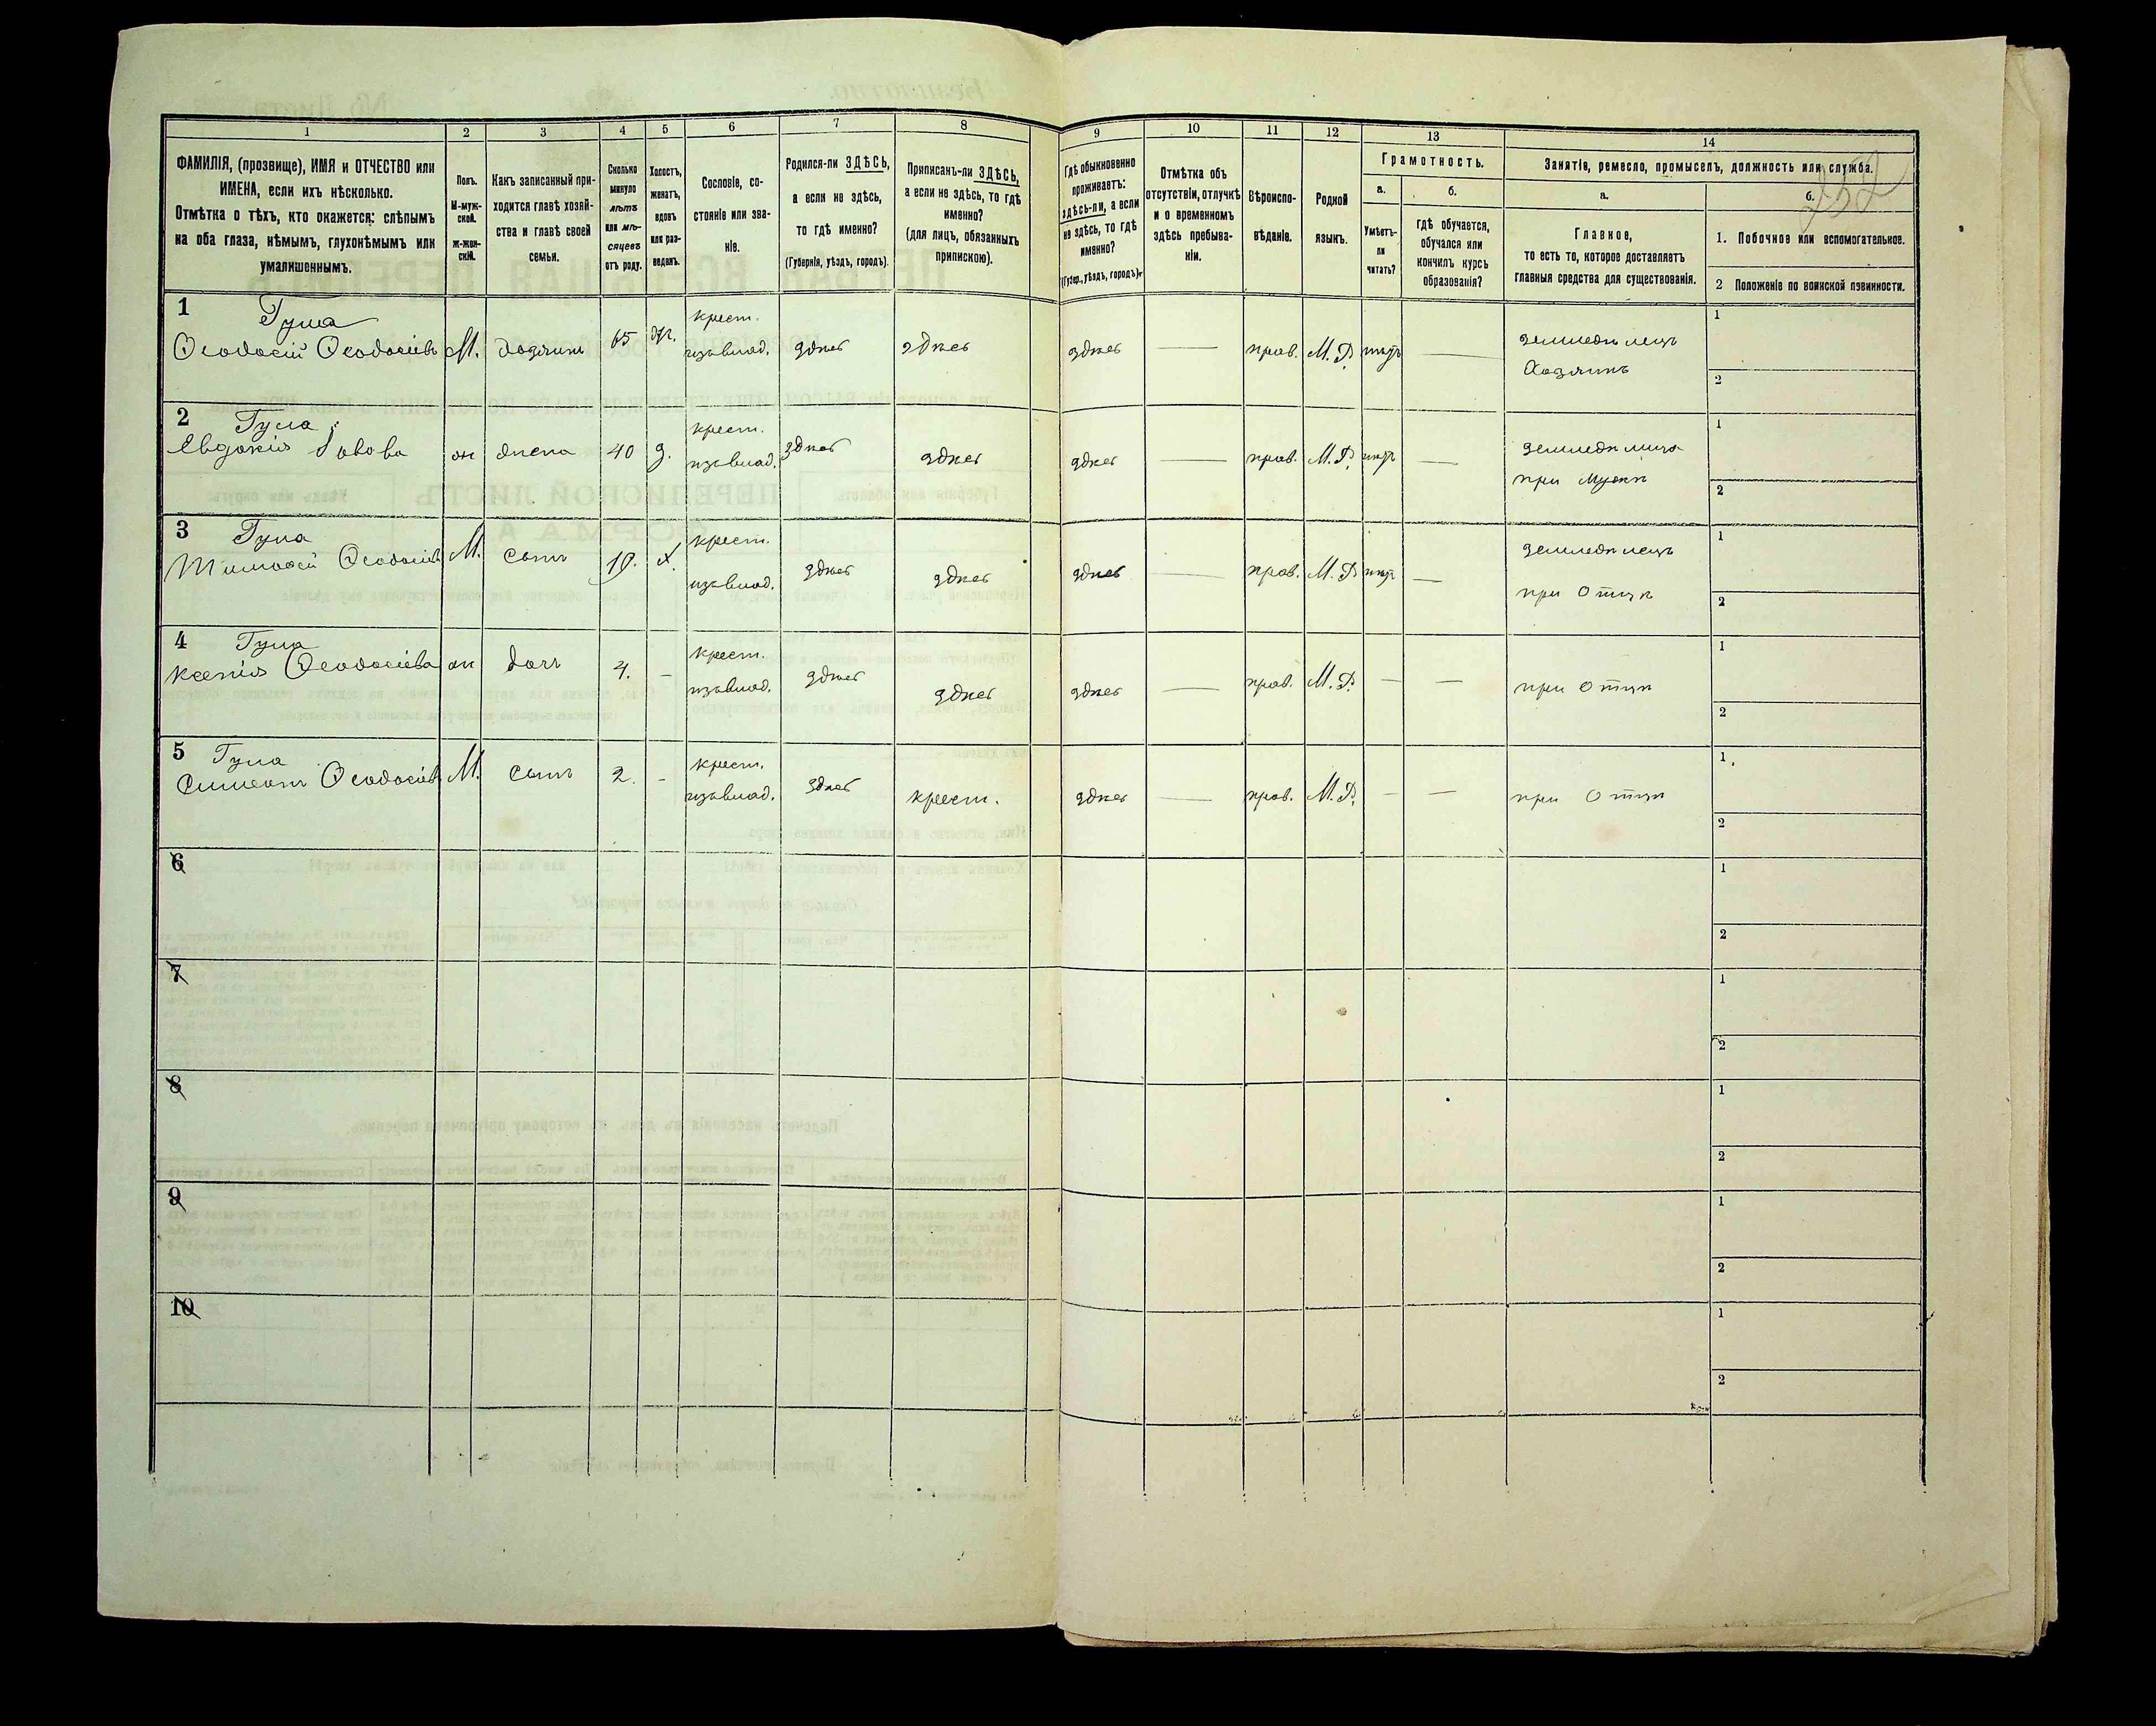 1 2 3 4 5 6 7 8 9 10 11 12 13 14
ФАМИЛІЯ, (прозвище), ИМЯ и ОТЧЕСТВО или
ИМЕНА, если ихъ нѣсколько.
Отмѣтка о тѣхъ, кто окажется: слѣпымъ
на оба глаза, нѣмымъ, глухонѣмымъ или
умалишеннымъ.
Полъ.
М-муж-
ской.
ж-жен-
скій.
Какъ записанный при-
ходится главѣ хозяй-
ства и главѣ своей
семьи.
Сколько
минуло
лѣтъ
или мѣ-
сяцевъ
отъ роду.
Холостъ,
женатъ,
вдовъ
или раз-
веденъ.
Сословіе, со-
стояніе или зва-
ніе.
Родился-ли ЗДѢСЬ,
а если не здѣсь,
то гдѣ именно?
(Губернія, уѣздъ, городъ).
Приписанъ-ли ЗДѢСЬ,
а если не здѣсь, то гдѣ
именно?
(для лицъ, обязанныхъ
припискою).
Гдѣ обыкновенно
проживаетъ:
здѣсь-ли, а если
не здѣсь, то гдѣ
именно?
(Губер., уѣздъ, городъ).
Отмѣтка объ
отсутствіи, отлучкѣ
и о временномъ
здѣсь пребыва-
ніи.
Вѣроиспо-
вѣданіе.
Родной
языкъ.
Грамотность.
а.
Умѣетъ-
ли
читать?
б.
гдѣ обучается,
обучался или
кончилъ курсъ
образованія?
Занятія, ремесло, промыселъ, должность или служба.
252
а.
Главное,
то есть то, которое доставляетъ
главныя средства для существованія.
б.
1. Побочное или вспомогательное.
2 Положеніе по воинской повинности.
1
Ѳеодосій Ѳеодосіевъ М. хозяинъ 65 ж. крест.
изъ влад. здѣсь здѣсь здѣсь — прав. М. Р. нѣтъ — земледѣлецъ
Хозяинъ
1
2
2
Евдокія ж жена 40 з. крест.
изъ влад. здѣсь здѣсь здѣсь — прав. М. Р. нѣтъ — 
при Мужѣ
1
2
3
Тимофей Ѳеодосіевъ М. сынъ 19. х. крест.
изъ влад. здѣсь здѣсь здѣсь — прав. М. Р. нѣтъ — земледѣлецъ
при Отцѣ
1
2
4
Ксенія Ѳеодосіева ж дочь 4. - крест.
изъ влад. здѣсь здѣсь здѣсь — прав. М. Р. — — при отцѣ
1
2
5
Симеонъ Ѳеодосіевъ М. сынъ 2. - крест.
изъ влад. здѣсь крест. здѣсь — прав. М. Р. — — при Отцѣ
1
2
6
1
2
7
1
2
8
1
2
9
1
2
10
1
2